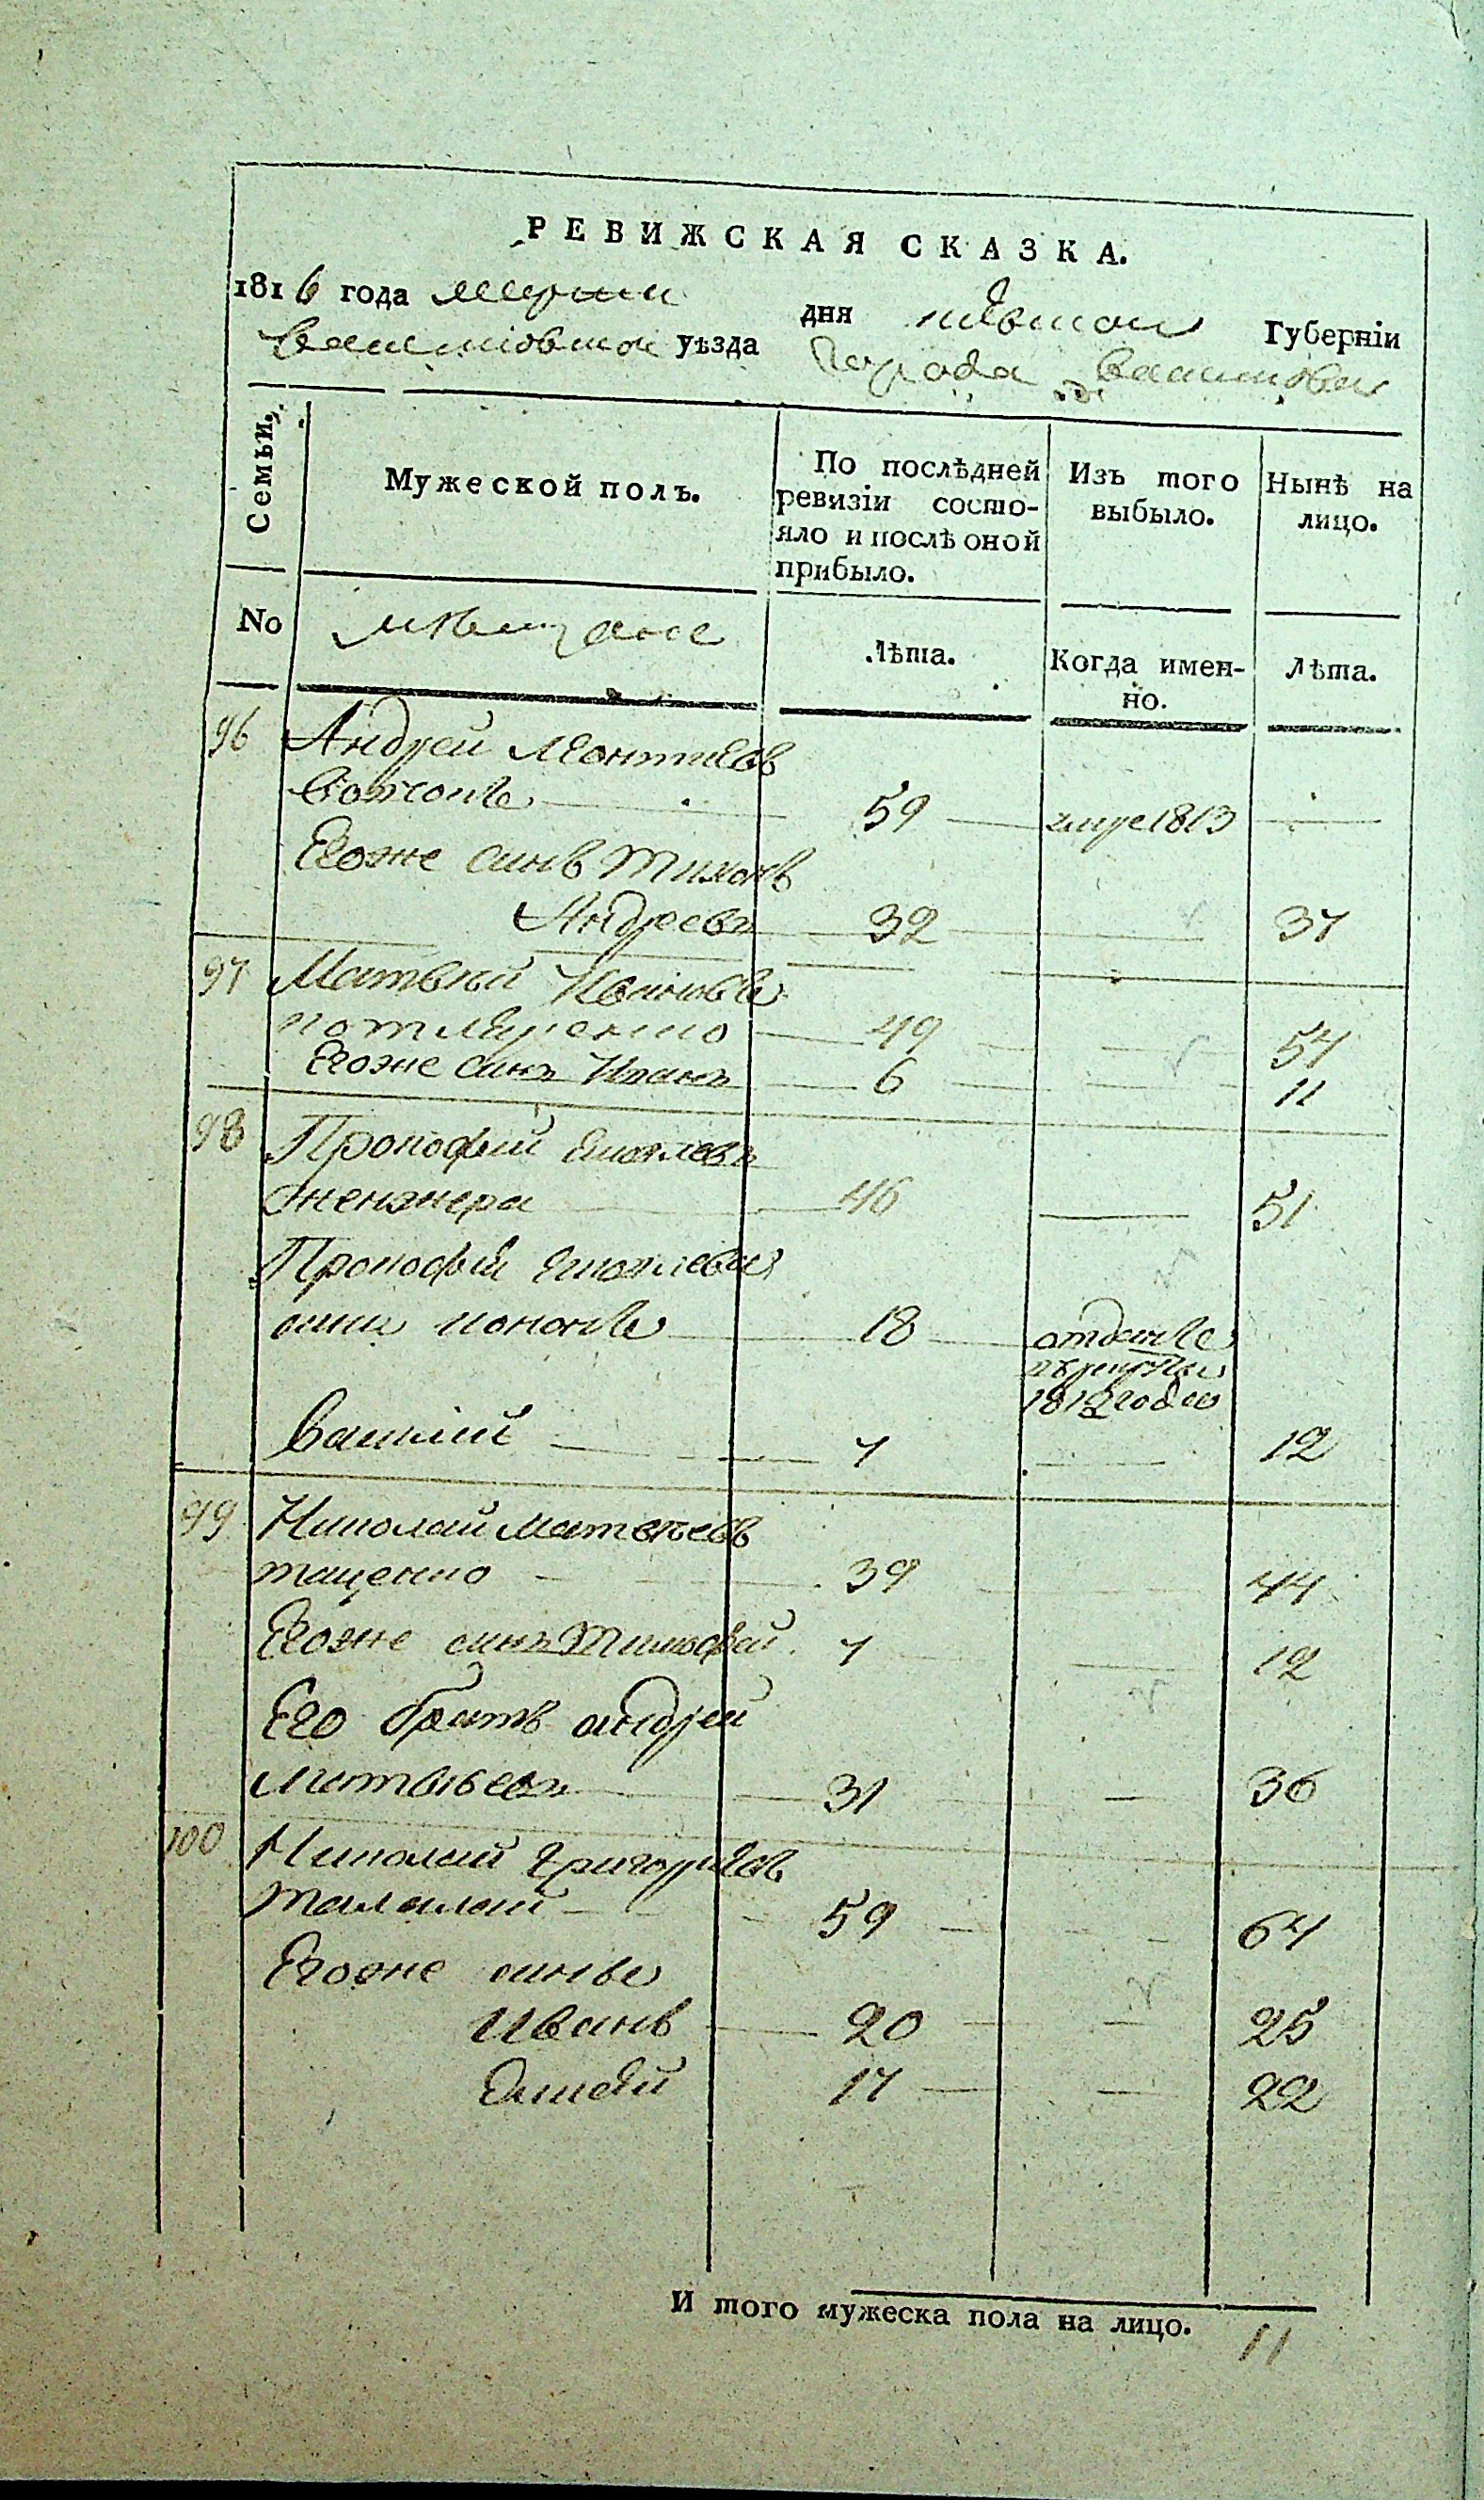 РЕВИЖСКАЯ СКАЗКА.
1816 года дня Губерніи
уѣзда города
Семьи.
Мужеской полъ.
По послѣдней ревизіи состо-
яло и послѣ оной
прибыло.
Изъ того
выбыло.
Нынѣ на
лицо.
No
мѣщане
Лѣта.
Когда имен-
но.
Лѣта.
96 Андрей Леонтиевъ
59 1813
Егоже синъ Тихонъ
Андреевъ 32 37
97 Матвѣй Ивановъ
49 54
Егоже синъ Иванъ 6 11
98 Прокофий Яковлевъ
46 51
Прокофия Яковлева
18 отданъ
в рекруты
1812 года
Василий 7 12
99 Николай Матвѣевъ
тащенко 39 44
Егоже синъ Тимофей 7 12
Его братъ андрей
Матвѣевъ 31 36
100 Николай Григориевъ
Талалай 59 64
Егоже сины
Иванъ 20 25
17 22
И того мужеска пола на лицо. 11